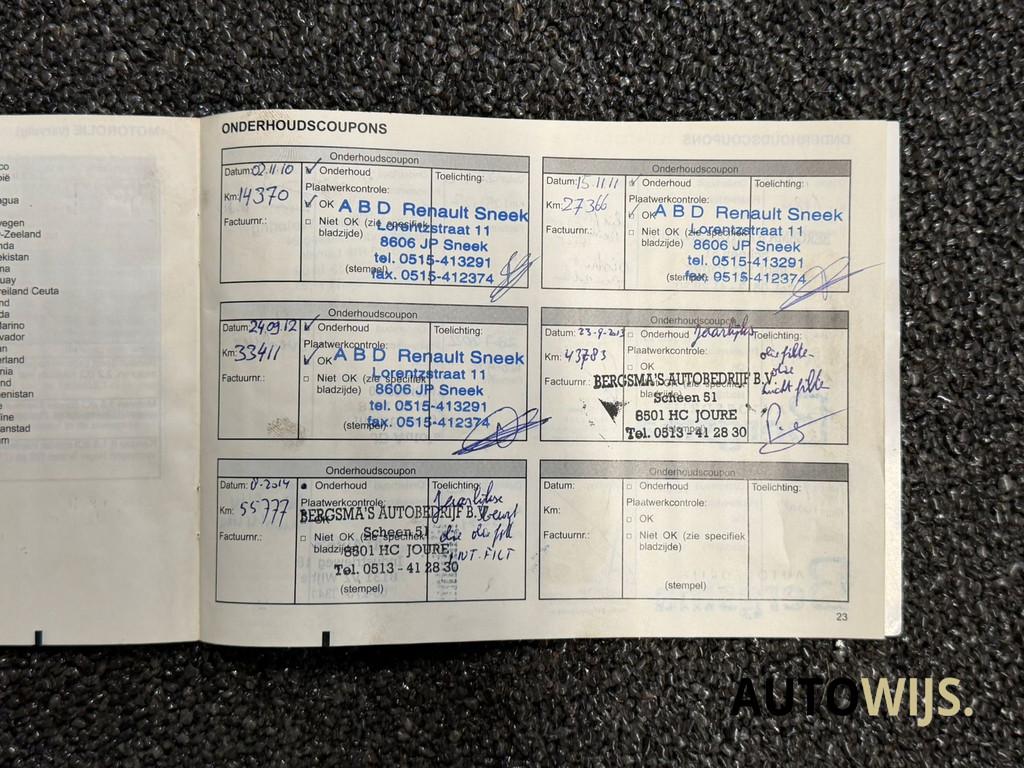 co
bië
agua
wegen
-Zeeland
nda
ekistan
ma
uay
reiland Ceuta
nd
da
Marino
vador
an
erland
nia
nd
enistan
e
ine
anstad
m
ONDERHOUDSCOUPONS
Onderhoudscoupon
Datum: 02.11.10
✓ Onderhoud
Toelichting:
Km: 14370
Plaatwerkcontrole:
✓ OK
Factuurnr.:
Niet OK (zie specifiek
bladzijde)
(stempel)
ABD Renault Sneek
Lorentzstraat 11
8606 JP Sneek
tel. 0515-413291
fax. 0515-412374
Onderhoudscoupon
Datum: 15.11.11
✓ Onderhoud
Toelichting:
Km: 27366
Plaatwerkcontrole:
✓ OK
Factuurnr.:
Niet OK (zie specifiek
bladzijde)
(stempel)
ABD Renault Sneek
Lorentzstraat 11
8606 JP Sneek
tel. 0515-413291
fax. 0515-412374
Onderhoudscoupon
Datum: 24.09.12
✓ Onderhoud
Toelichting:
Km: 33411
Plaatwerkcontrole:
✓ OK
Factuurnr.:
Niet OK (zie specifiek
bladzijde)
(stempel)
ABD Renault Sneek
Lorentzstraat 11
8606 JP Sneek
tel. 0515-413291
fax. 0515-412374
Onderhoudscoupon
Datum: 23-9-2013
Onderhoud
Toelichting:
Km: 43783
Plaatwerkcontrole:
OK
Factuurnr.:
Niet OK (zie specifiek
bladzijde)
(stempel)
oliefilter
olie
luchtfilter
BERGSMA'S AUTOBEDRIJF B.V.
Scheen 51
8501 HC JOURE
Tel. 0513 - 41 28 30
Onderhoudscoupon
Datum: -2014
Onderhoud
Toelichting:
Km: 55777
Plaatwerkcontrole:
OK
Factuurnr.:
Niet OK (zie specifiek
bladzijde)
(stempel)
INT. FILT
BERGSMA'S AUTOBEDRIJF B.V.
Scheen 51
8501 HC JOURE
Tel. 0513 - 41 28 30
Onderhoudscoupon
Datum:
Onderhoud
Toelichting:
Km:
Plaatwerkcontrole:
OK
Factuurnr.:
Niet OK (zie specifiek
bladzijde)
(stempel)
23
AUTOWIJS.